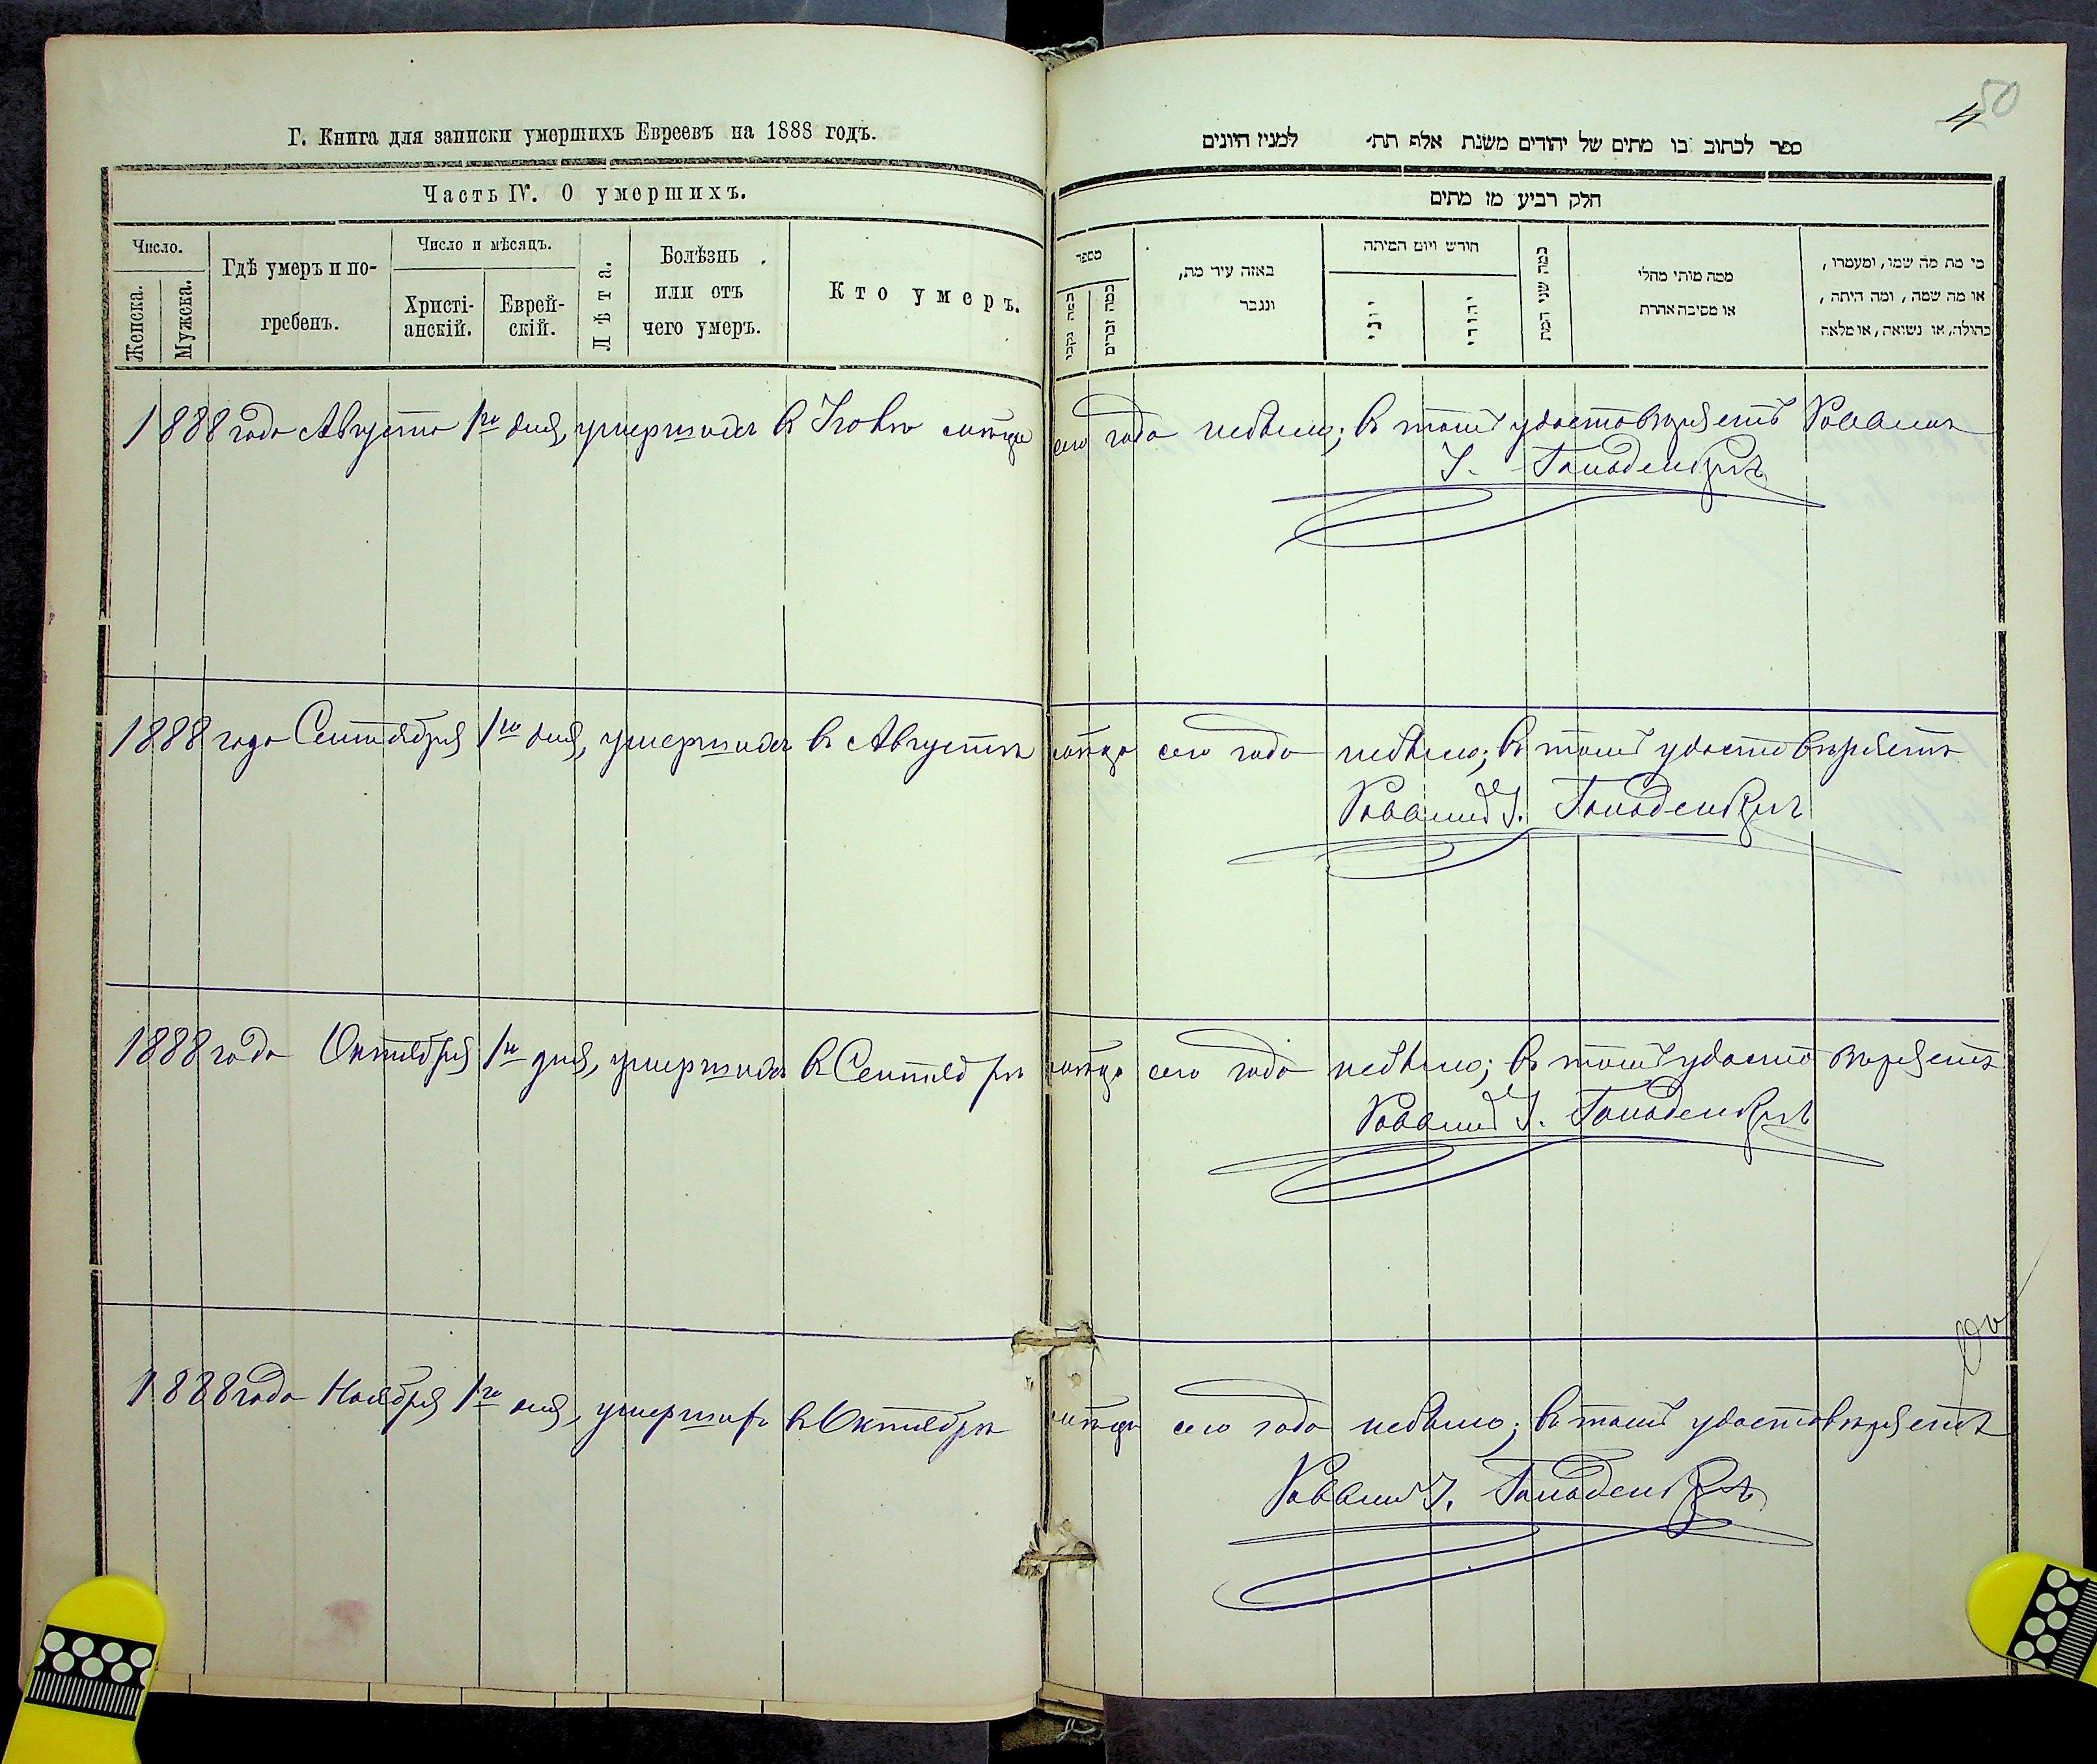 Г. Книга для записки умершихъ Евреевъ на 1888 годъ.
Часть IV. О умершихъ.
Число.
Женска.
Мужеска.
Гдѣ умеръ и по-
гребенъ.
Число и мѣсяцъ.
Христі-
анскій.
Еврей-
скій.
Лѣта.
Болѣзнь
или отъ
чего умеръ.
Кто умеръ.
50
ספר לכתוב בו מתים של יהודים משנת אלף תת׳ למנין היונים
חלק רביע מן מתים
מספר
כמה נקבו
כמה זכרים
באזה עיר מת,
ונגבר
חורש ויום המיתה
יוני
יהודי
כמה שני המת
ממה מותי מחלי
או מסיבה אחרת
מי מת מה שמו, ומעמרו,
או מה שמה, ומה היתה,
בתולה, או נשואה, או מלאה
1888 года Августа 1го дня, умершихъ въ Іюлѣ мѣсяце сего года небыло; въ томъ удостовѣряетъ Раввинъ
1888 года Сентября 1го дня, умершихъ въ Августѣ мѣсяце сего года небыло; въ томъ удостовѣряетъ
Раввинъ
1888 года Октября 1го дня, умершихъ въ Сентябрѣ мѣсяце сего года небыло; въ томъ удостовѣряетъ
Раввинъ
1888 года Ноября 1го дня, умершихъ въ Октябрѣ мѣсяце сего года небыло; въ томъ удостовѣряетъ
Раввинъ